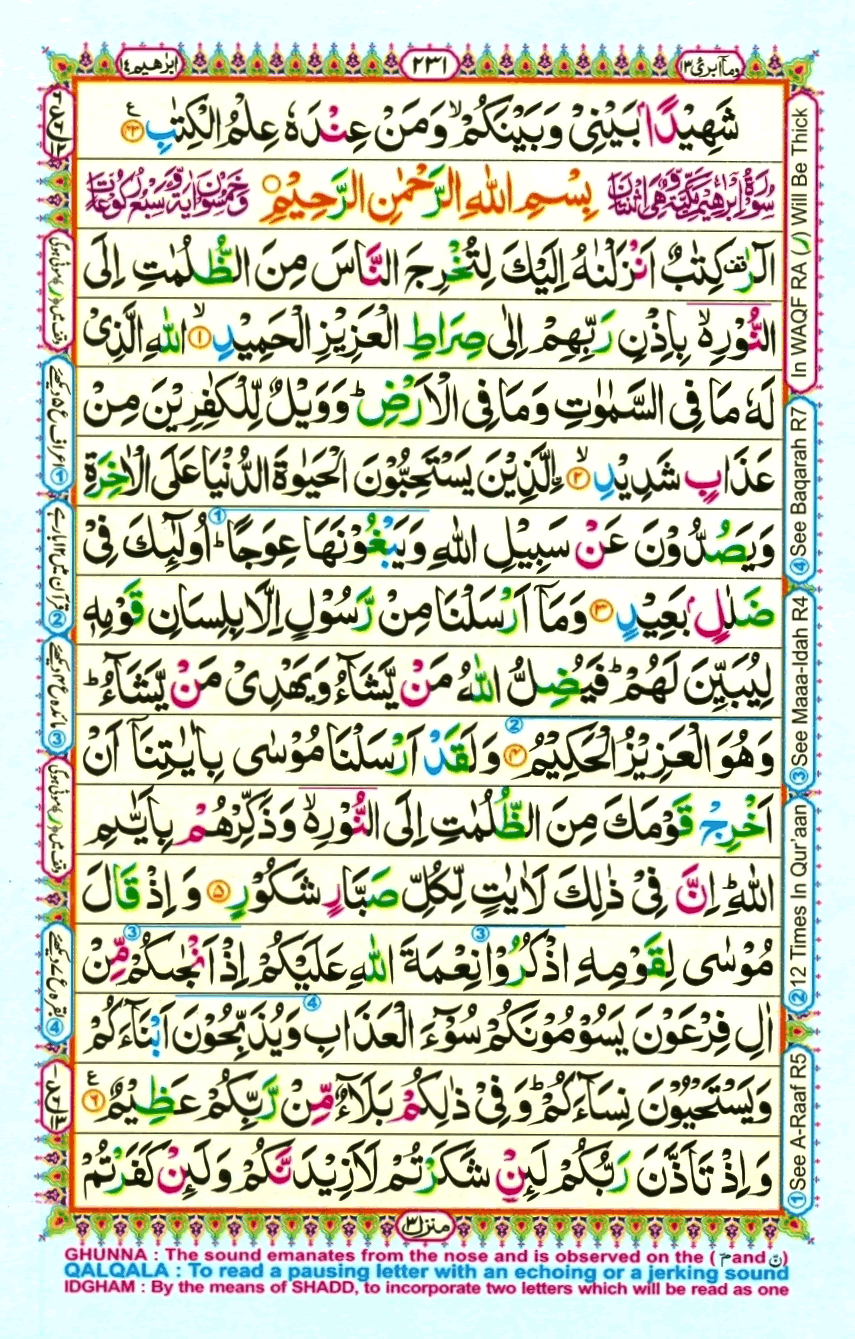 وما ابرئ ١٣
٢٣١
ابرٰهيم ١٤
شَهِيْدًۢا بَيْنِيْ وَبَيْنَكُمْ ۙ وَمَنْ عِنْدَهٗ عِلْمُ الْكِتٰبِ ۝٤٣
سُوْرَةُ اِبْرٰهِيْمَ مَكِّيَّةٌ وَّهِيَ اثْنَتَانِ بِسْمِ اللهِ الرَّحْمٰنِ الرَّحِيْمِ وَخَمْسُوْنَ اٰيَةً وَّسَبْعُ رُكُوْعَاتٍ
الٓرٰ ۚقف كِتٰبٌ اَنْزَلْنٰهُ اِلَيْكَ لِتُخْرِجَ النَّاسَ مِنَ الظُّلُمٰتِ اِلَى
النُّوْرِ ۙ۬ بِاِذْنِ رَبِّهِمْ اِلٰى صِرَاطِ الْعَزِيْزِ الْحَمِيْدِ ۙ۝١ اللهِ الَّذِيْ
لَهٗ مَا فِي السَّمٰوٰتِ وَمَا فِي الْاَرْضِ ؕ وَوَيْلٌ لِّلْكٰفِرِيْنَ مِنْ
عَذَابٍ شَدِيْدِ ۙ۝٢ اِ۟لَّذِيْنَ يَسْتَحِبُّوْنَ الْحَيٰوةَ الدُّنْيَا عَلَى الْاٰخِرَةِ
وَيَصُدُّوْنَ عَنْ سَبِيْلِ اللهِ وَيَبْغُوْنَهَا عِوَجًا ؕ اُولٰٓئِكَ فِيْ
ضَلٰلٍۭ بَعِيْدٍ ۝٣ وَمَاۤ اَرْسَلْنَا مِنْ رَّسُوْلٍ اِلَّا بِلِسَانِ قَوْمِهٖ
لِيُبَيِّنَ لَهُمْ ؕ فَيُضِلُّ اللهُ مَنْ يَّشَآءُ وَيَهْدِيْ مَنْ يَّشَآءُ ؕ
وَهُوَ الْعَزِيْزُ الْحَكِيْمُ ۝٤ وَلَقَدْ اَرْسَلْنَا مُوْسٰى بِاٰيٰتِنَاۤ اَنْ
اَخْرِجْ قَوْمَكَ مِنَ الظُّلُمٰتِ اِلَى النُّوْرِ ۙ۬ وَذَكِّرْهُمْ بِاَيّٰىمِ
اللهِ ؕ اِنَّ فِيْ ذٰلِكَ لَاٰيٰتٍ لِّكُلِّ صَبَّارٍ شَكُوْرٍ ۝٥ وَاِذْ قَالَ
مُوْسٰى لِقَوْمِهِ اذْكُرُوْا نِعْمَةَ اللهِ عَلَيْكُمْ اِذْ اَنْجٰىكُمْ مِّنْ
اٰلِ فِرْعَوْنَ يَسُوْمُوْنَكُمْ سُوْٓءَ الْعَذَابِ وَيُذَبِّحُوْنَ اَبْنَآءَكُمْ
وَيَسْتَحْيُوْنَ نِسَآءَكُمْ ؕ وَفِيْ ذٰلِكُمْ بَلَآءٌ مِّنْ رَّبِّكُمْ عَظِيْمٌ ۝٦
وَاِذْ تَاَذَّنَ رَبُّكُمْ لَئِنْ شَكَرْتُمْ لَاَزِيْدَنَّكُمْ وَلَئِنْ كَفَرْتُمْ
منزل ٣
In WAQF RA (ر) Will Be Thick
④ See Baqarah R7
③ See Maaa-Idah R4
② 12 Times In Qur'aan
① See A-Raaf R5
① اعراف ع ۵ دیکھئے
② قرآن میں ۱۲ بار ہے
③ مائدہ ع ۴ دیکھئے
④ بقرہ ع ۷ دیکھئے
GHUNNA : The sound emanates from the nose and is observed on the ( مّ and نّ )
QALQALA : To read a pausing letter with an echoing or a jerking sound
IDGHAM : By the means of SHADD, to incorporate two letters which will be read as one